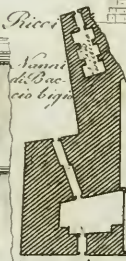 Ricci
Nanni
di Bac=
cio bigio